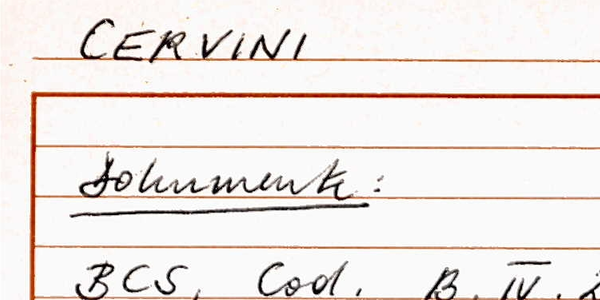 CERVINI
Dokumente:
BCS, Cod. B. IV.